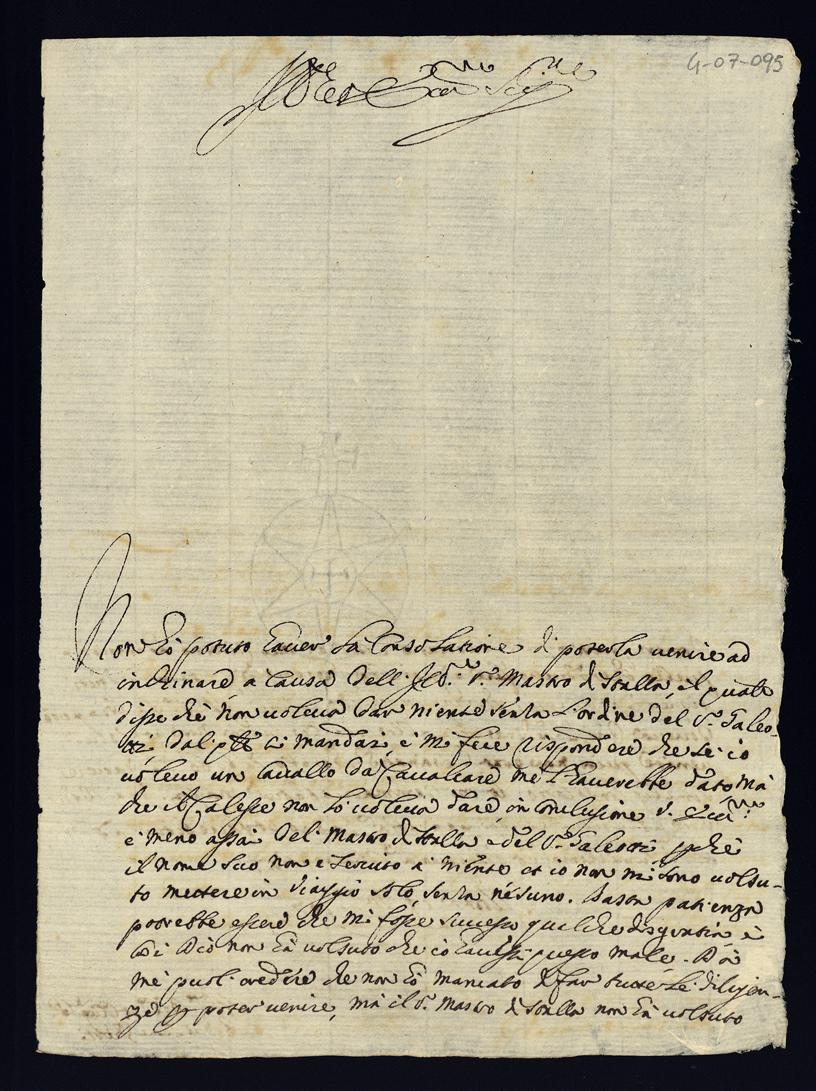 4-07-095
Ill.mo et Ecc.mo Sig.re
Non hò potuto haver la Consolatione di poterla venire ad
inchinare a causa dell'Ill.mo S.r Mastro di Stalla, il quale
disse che non voleva dar niente senza l'ordine del S.r Galeo-
tti, dal ci mandai, e mi fece rispondere che se io
volevo un Cavallo da Cavalcare me l'haverebbe dato mà
che il Calesse non lo voleva dare, in conclusione V. Ecc.za
è meno assai del Mastro di Stalla e del S.r Galeotti perchè
il nome suo non è servito à niente et io non mi sono volsu-
to mettere in viaggio solo senza nesuno. Basta patienza
potrebbe essere che mi fosse sucesso qualche disgratia e
Dio non hà volsuto che io havessi questo male. Da
me puol credere che non hò mancato di far tutte le diligen-
ze per poter venire, mà il S.r Mastro di Stalla non hà volsuto